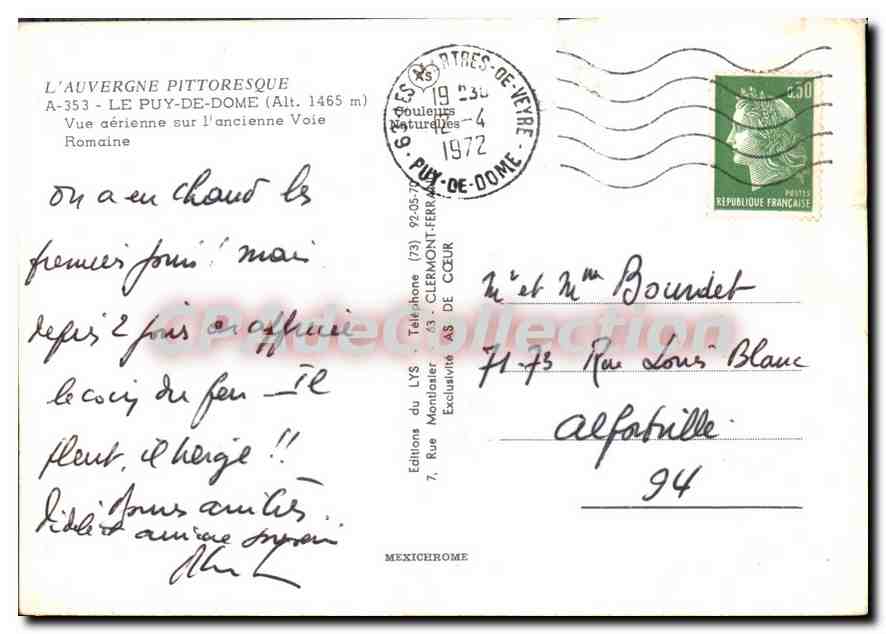 L'AUVERGNE PITTORESQUE
A-353 - LE PUY-DE-DOME (Alt. 1465 m)
Vue aérienne sur l'ancienne Voie
Romaine
on a eu chaud les
premiers jours! mais
depuis 2 jours on apprécie
le coin du feu - Il
pleut, il neige !!
bonnes amitiés
amical souvenir
Couleurs
Naturelles
AS
63 LES MARTRES-DE-VEYRE
12-4
1972
PUY-DE-DOME
0,30
POSTES
REPUBLIQUE FRANÇAISE
Editions du LYS - Téléphone (73) 92-05-70
7, Rue Montlosier - 63 - CLERMONT-FERRAND
Exclusivité AS DE CŒUR
Mr et Mme Bourdet
71-73 Rue Louis Blanc
Alfortville
94
MEXICHROME
CPAdeCollection